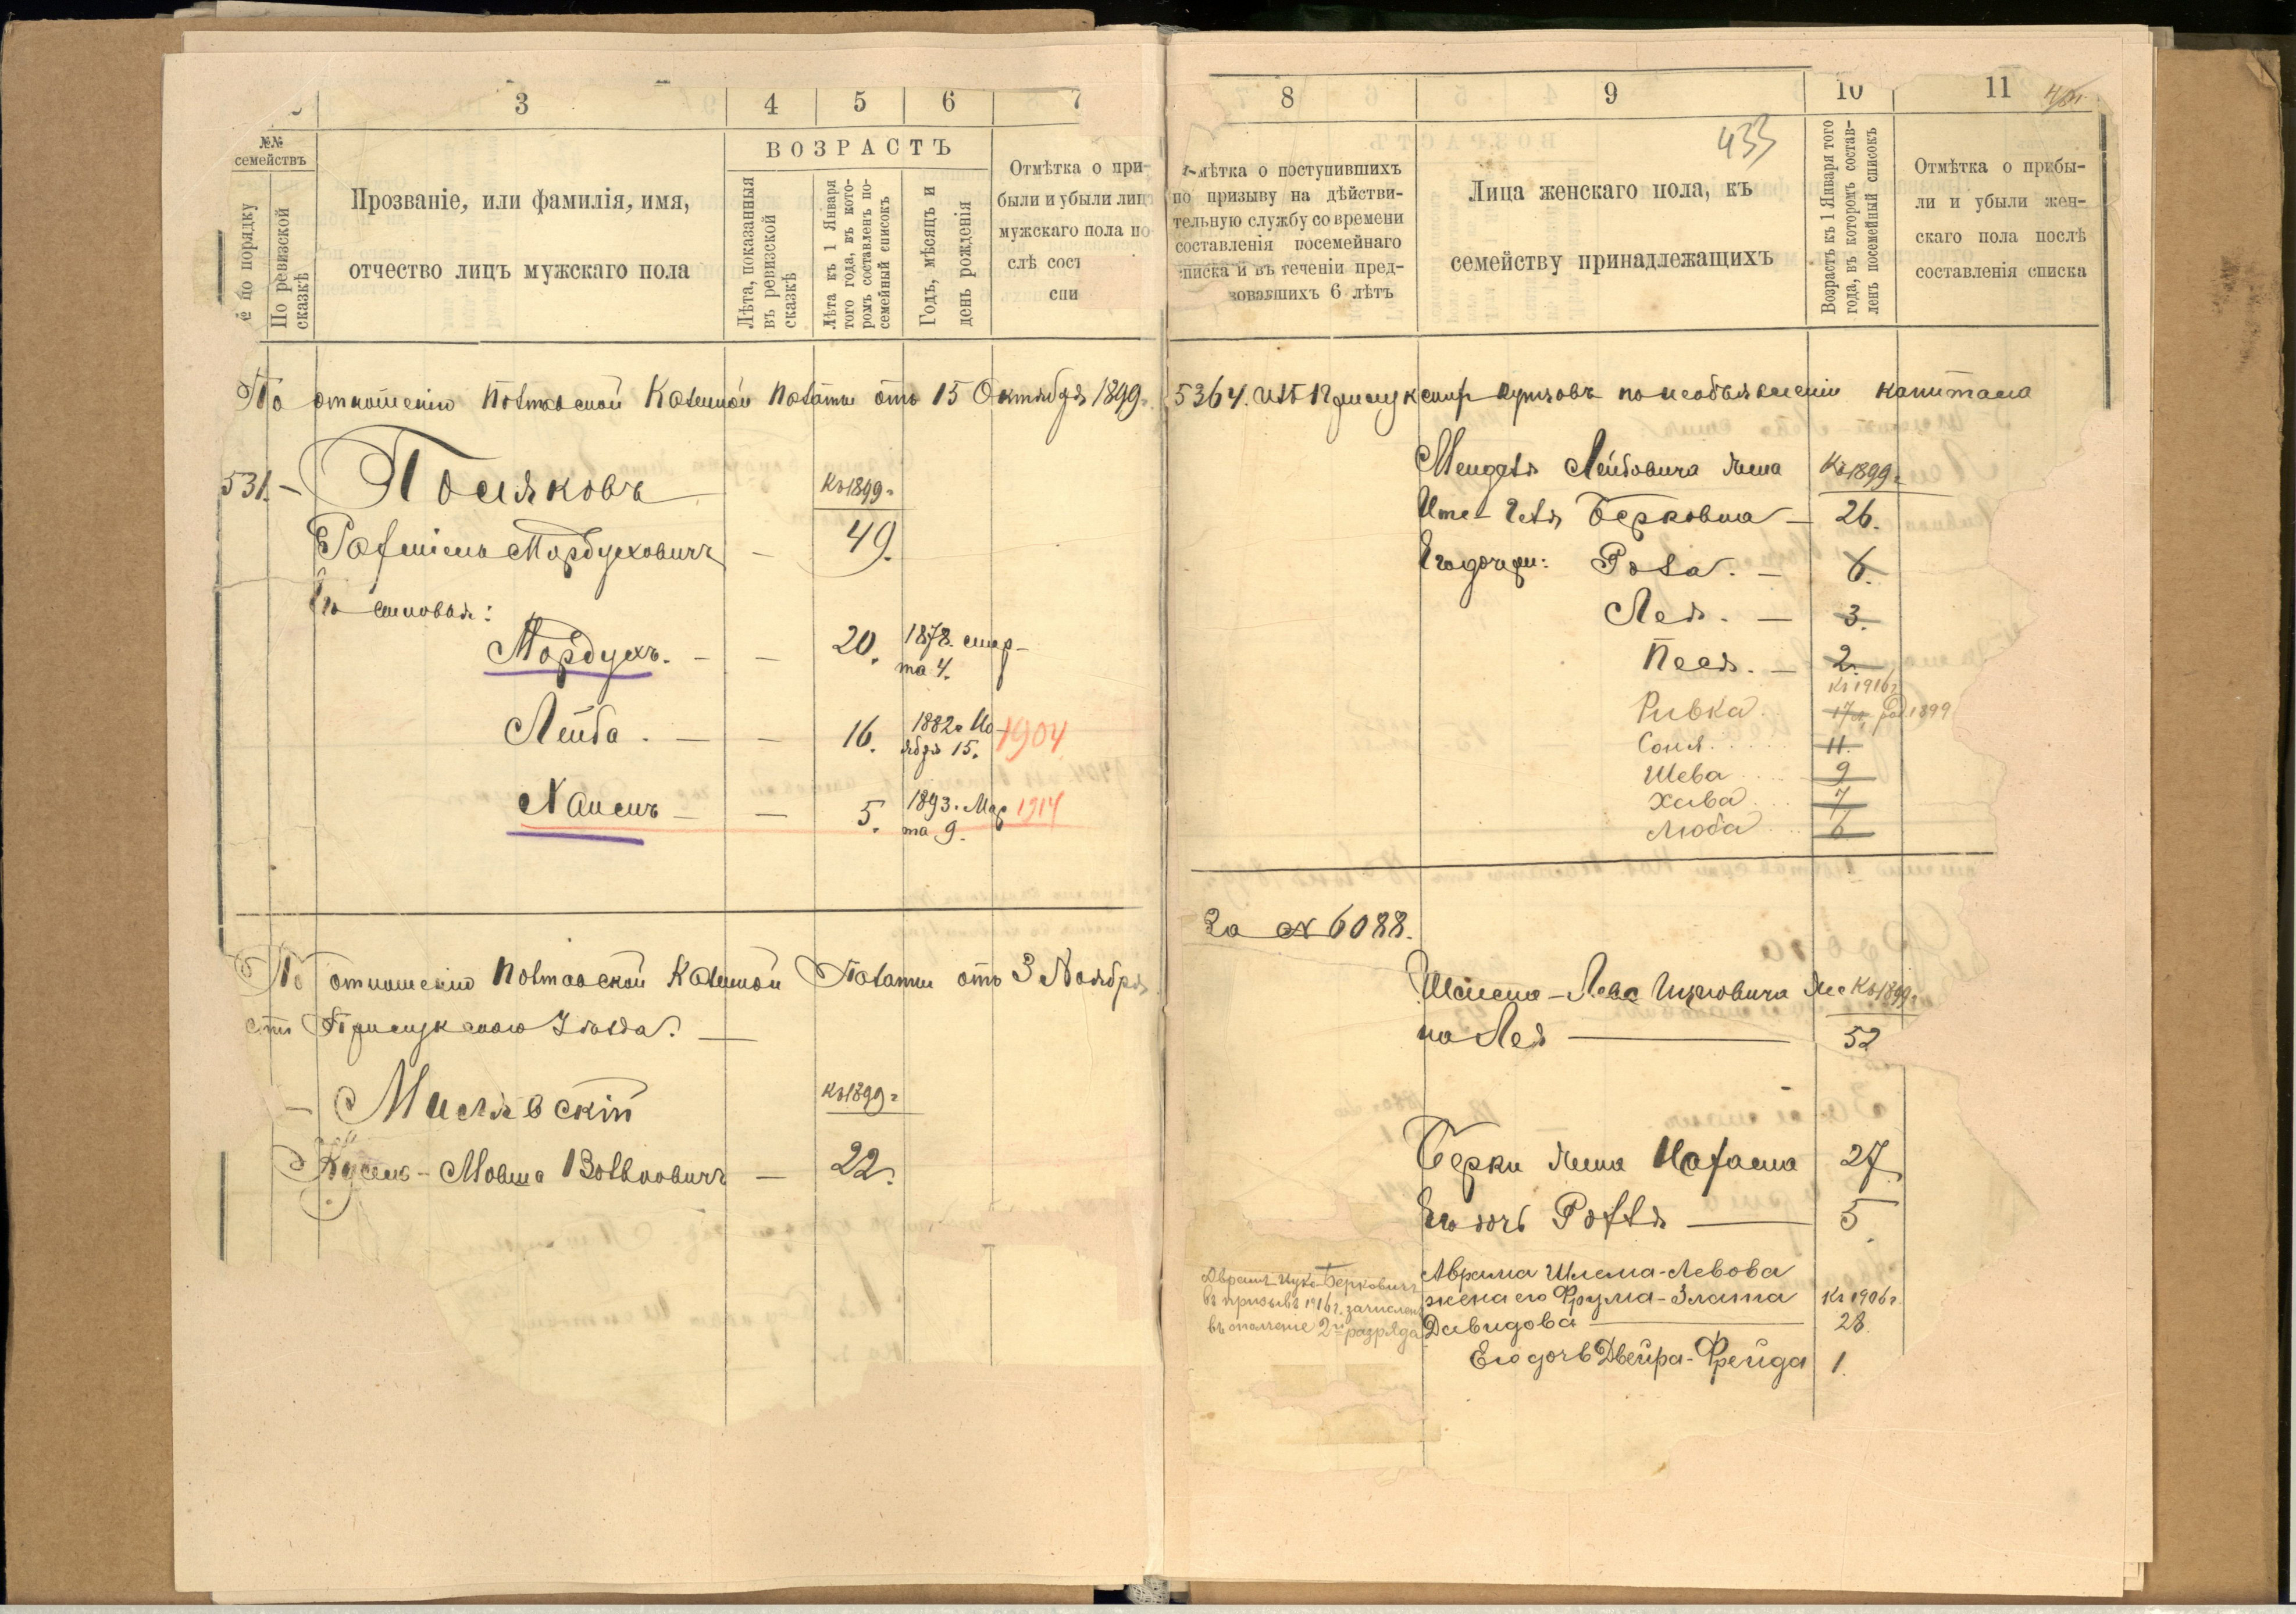 3 4 5 6 7
№№ семействъ
№ по порядку
По ревизской сказкѣ
Прозваніе, или фамилія, имя,
отчество лицъ мужскаго пола
ВОЗРАСТЪ
Лѣта, показанныя
въ ревизской
сказкѣ
Лѣта къ 1 Января
того года, въ кото-
ромъ составленъ по-
семейный списокъ
Годъ, мѣсяцъ и
день рожденія
Отмѣтка о при-
были и убыли лиц
мужскаго пола по
слѣ сост
спи
По отношенію Полтавской Казенной Палаты отъ 15 Октября 1899г.
531. – Поляковъ Къ 1899г.
Мордуховичъ – 49.
сыновья:
Мордухъ. – – 20. 1878. мар-
та 4.
Лейба. – – 16. 1882г. Но-
ября 15. 1904
– – 5. 1893. Мар
та 9. 1914
По отношенію Полтавской Казенной Палаты отъ 3 Ноября
Прилукскаго Уѣзда.
– Къ 1899г.
Мовша Вольковичъ – 22.
8 9 10 11
433
мѣтка о поступившихъ
по призыву на дѣйстви-
тельную службу со времени
составленія посемейнаго
списка и въ теченіи пред-
зовавшихъ 6 лѣтъ
Лица женскаго пола, къ
семейству принадлежащихъ
Возрастъ къ 1 Января того
года, въ которомъ состав-
ленъ посемейный списокъ
Отмѣтка о прибы-
ли и убыли жен-
скаго пола послѣ
составленія списка
5364. изъ Прилукских купцовъ по необъявленію капитала
Менделя Лейбовича жена Къ 1899г.
Берковна – 26.
Его дочери: Роза. – 6.
Лея. – 3.
Песя. – 2.
Къ 1916г.
Ривка. 17 род. 1899
Соня. 11.
Шева 9
Хава 7
Люба 6
За № 6088.
Къ 1899г.
на Лея 52
Берки жена 27
Его дочь 5
Аврамъ Ицко Берковичъ
въ призывъ 1916г. зачисленъ
въ ополчение 2го разряда
Аврама Шлема-Левова
жена его Фрума-Злата Къ 1906г.
Давидова 28.
Его дочь Двейра-Фрейда 1.